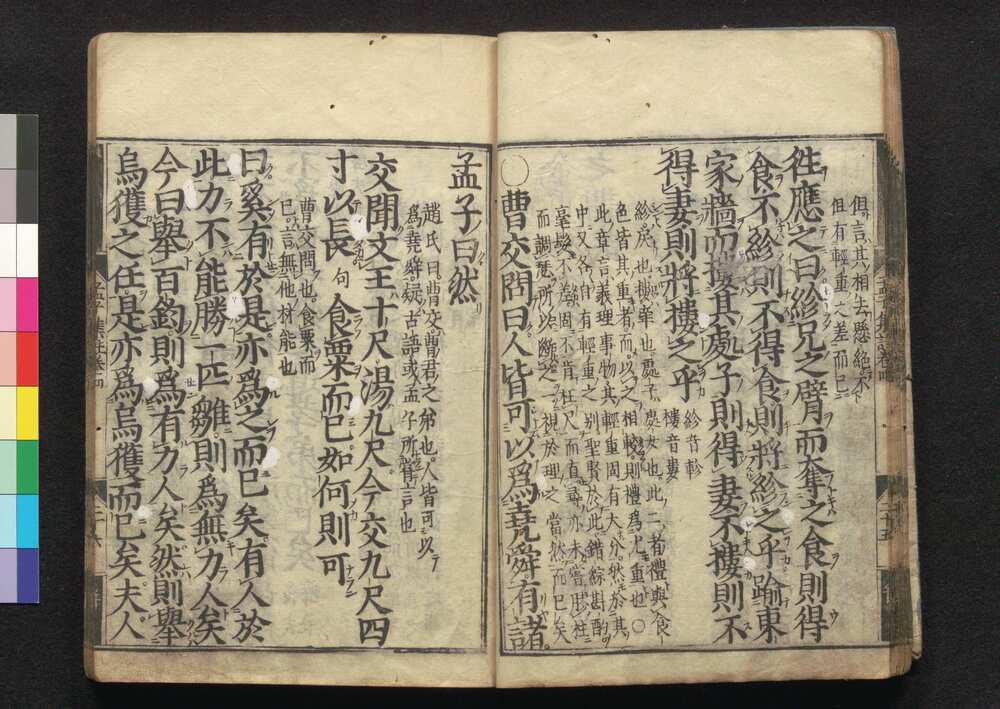 但言其相去懸絕不
但有輕重之差而已
往應之曰紾兄之臂而奪之食則得
食不紾則不得食則將紾之乎踰東
家牆而摟其處子則得妻不摟則不
得妻則將摟之乎
紾音軫
摟音婁
紾戾也摟牽也處子處女也此二者禮與食
色皆其重者而以之相較則禮爲尤重也○
此章言義理事物其輕重固有大分然於其
中又各自有輕重之別聖賢於此錯綜斟酌
毫髮不差固不肯枉尺而直尋亦未嘗膠柱
而調瑟所以斷之一視於理之當然而已矣
○曹交問曰人皆可以爲堯舜有諸
孟子曰然
趙氏曰曹交曹君之弟也人皆可以
爲堯舜疑古語或孟子所嘗言也
交聞文王十尺湯九尺今交九尺四
寸以長句食粟而已如何則可
曹交問也食粟而
已言無他材能也
曰奚有於是亦爲之而已矣有人於
此力不能勝一匹雛則爲無力人矣
今曰舉百鈞則爲有力人矣然則舉
烏獲之任是亦爲烏獲而已矣夫人